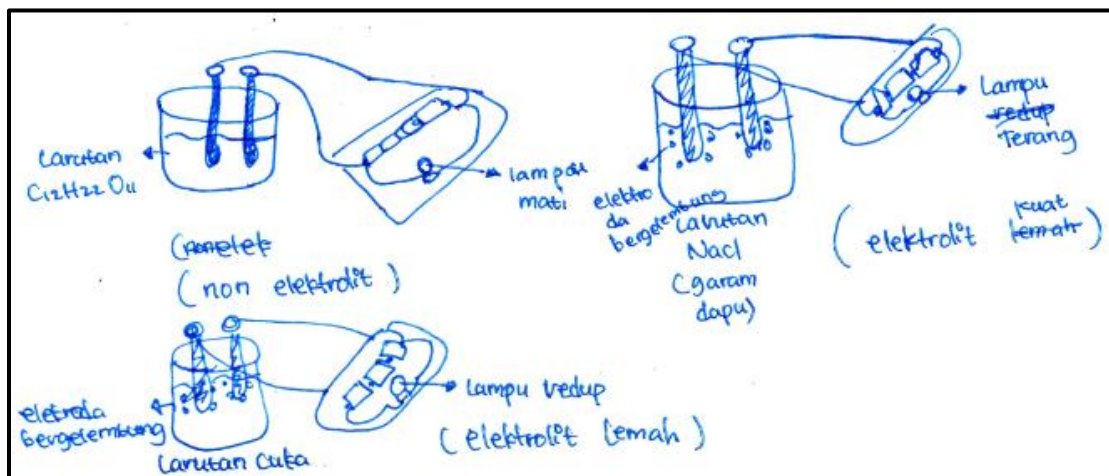 Larutan
C12H22O11
lampu
mati
(nonelek
(non elektrolit)
elektro
da
bergelembung
Larutan
NaCl
(garam
dapu)
Lampu
redup
Terang
kuat
(elektrolit lemah)
eletroda
bergelembung
Larutan Cuka
Lampu redup
(elektrolit lemah)